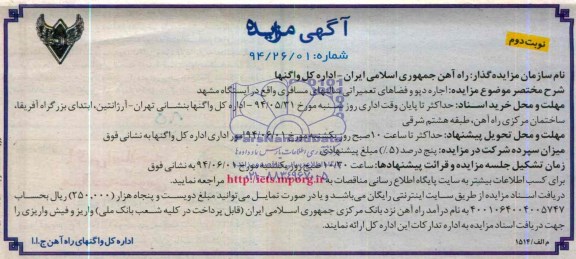 آگهی مزایده
شماره: ۹۴/۲۶/۰۱
نوبت دوم
نام سازمان مزایده گذار: راه آهن جمهوری اسلامی ایران - اداره کل واگنها
شرح مختصر موضوع مزایده: اجاره دپو و فضاهای تعمیراتی سالنهای مسافری واقع در ایستگاه مشهد
مهلت و محل خرید اسناد: حداکثر تا پایان وقت اداری روز شنبه مورخ ۹۴/۰۵/۳۱ - اداره کل واگنها بنشانی تهران - آرژانتین، ابتدای بزرگراه آفریقا،
ساختمان مرکزی راه آهن، طبقه هشتم شرقی
مهلت و محل تحویل پیشنهاد: حداکثر تا ساعت ۱۰ صبح روز یکشنبه مورخ ۹۴/۰۶/۰۱ امور اداری اداره کل واگنها به نشانی فوق
میزان سپرده شرکت در مزایده: پنج درصد (۵٪) مبلغ پیشنهادی
زمان تشکیل جلسه مزایده و قرائت پیشنهادها: ساعت ۱۰/۳۰ صبح روز یکشنبه مورخ ۹۴/۰۶/۰۱ به نشانی فوق
برای کسب اطلاعات بیشتر به سایت پایگاه اطلاع رسانی مناقصات به http://iets.mporg.ir مراجعه نمایید.
دریافت اسناد مزایده از طریق سایت اینترنتی رایگان می‌باشد و یا در صورت تمایل می‌توانید مبلغ دویست و پنجاه هزار (۲۵۰,۰۰۰) ریال بحساب
۴۰۰۱۰۶۴۰۰۴۰۰۵۷۴۷ به نام درآمد راه آهن نزد بانک مرکزی جمهوری اسلامی ایران (قابل پرداخت در کلیه شعب بانک ملی) واریز و فیش واریزی را
جهت دریافت اسناد مزایده به اداره تدارکات این اداره کل ارائه نمایند.
م الف/ ۱۵۱۴
اداره کل واگنهای راه آهن ج.ا.ا